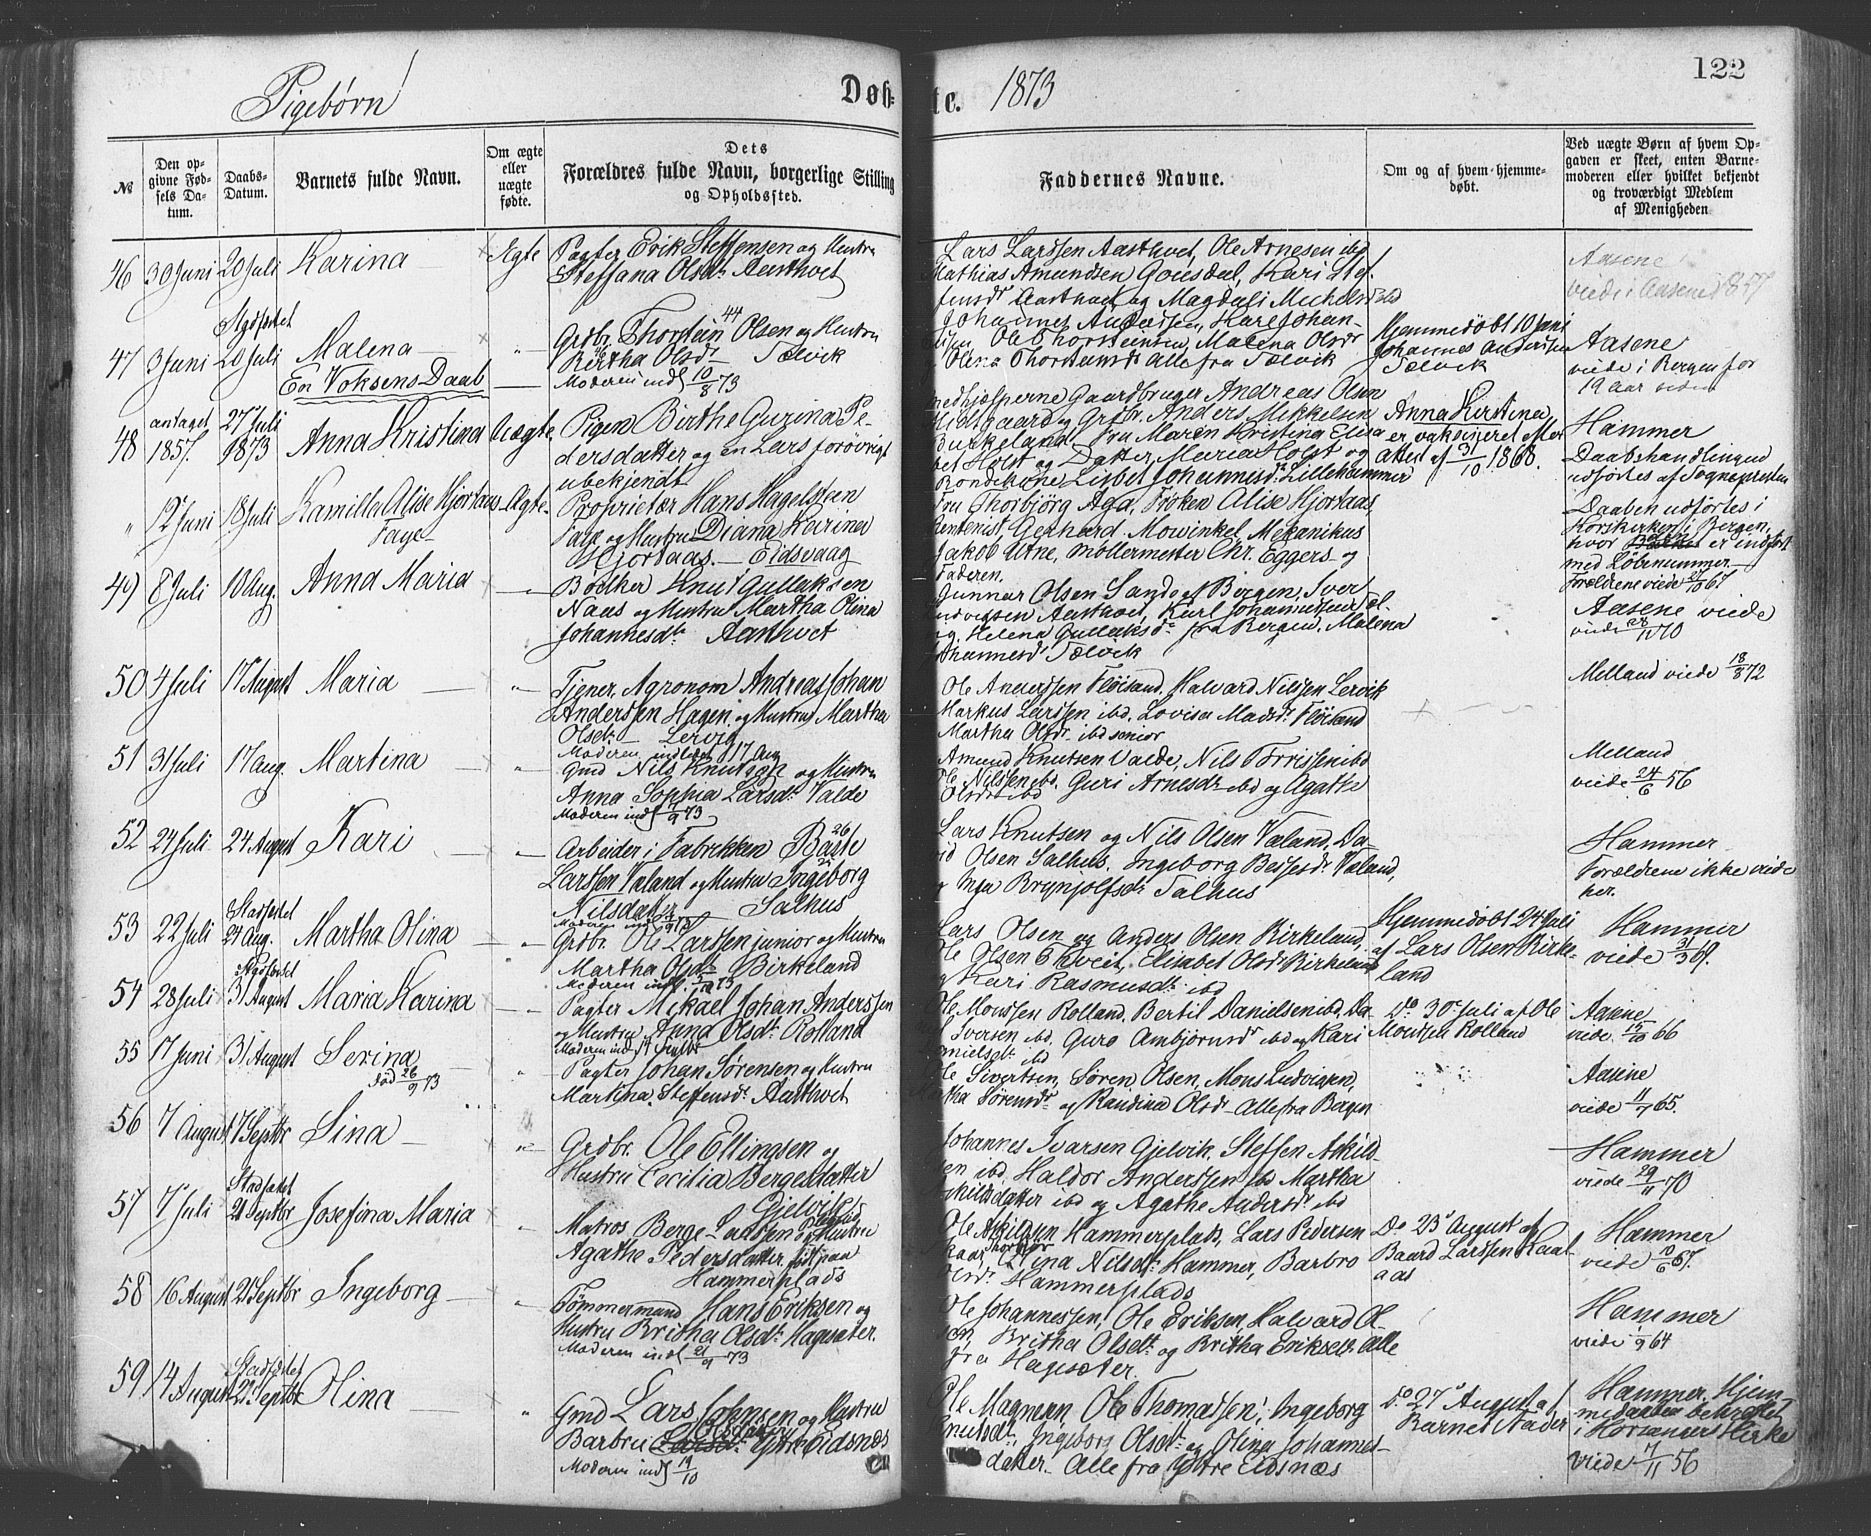 Pigebørn
Døb-
te.
1873
122
№
Den op-
givne Fød-
sels Da-
tum.
Daabs-
Datum.
Barnets fulde Navn.
Om ægte
eller
uægte
fødte.
Dets
Forældres fulde Navn, borgerlige Stilling
og Opholdssted.
Faddernes Navne.
Om og af hvem hjemme-
døbt.
Ved uægte Børn af hvem Op-
gaven er skeet, enten Barne-
moderen eller hvilket bekjendt
og troværdigt Medlem
af Menigheden
46 30 Juni 20 Juli Karina Ægte
Pagter Erik Steffensen og Hustru
Steffana Olsdr Aasthvet
Lars Larssen Aasthvet, Ole Arnesen ibd
Mathias Amundsen Kari Stef-
fensdr Aasthvet og Magdali Michelsd
Aasene
viede i Aasene
47 3 Juni Stadfæstet 20 Juli Malena "
Grdbr. Thorstein 44 Olsen og Hustru
Birtha Olsdr Tælvik
Moderen indl 10/8 73
Johannes Anderssen, Karl Johan-
sen Ole Thorsteinsen, Malena Olsdr
Olina Thorsteinsdr Alle fra Tælvik
Hjemmedøbt 10 Juni
Johannes Anderssen
Tælvik
Aasene
viede i Bergen for
19 Aar siden
En Voksens Daab
48 antaget 1857. 27 Juli 1873 Anna Kristina Uægte
Pigen Birthe Gurina Pe-
dersdatter og en Lars forøvrigt
ubekjendt
Gaardbruger Andreas Olsen
og Grdbr. Anders Mikkelsen
Birkeland Fru Maren Kristina Elisa
bet Holst og Datter Maria Holst og
Lisbet Johannesdr Lillehammer
Anna Kristina
er vaksineret efter
Attest af 31/10 1868.
Hammer
Daabshandlingen
udførtes af Sognepresten
" 12 Juni 18 Juli Kamilla Alise Hjortaas Faye Ægte
Proprietær Hans Hagelsteen
Faye og Hustru Diana Karina
Hjortaas. Eidsvaag
Fru Thorbjørg Aga, Frøken Alise Hjortaas
Rentenist, Gerhard Mowinkel Mekanikus
Jakob Utne, Møllermester Chr. Eggers og
Faderen.
Daaben udførtes i
Korskirken i Bergen,
hvor er indført
med Løbenummer
Forældrene viede 67
49 8 Juli 10 Aug. Anna Maria "
Bødker Knut Gullaksen
Naas og Hustru Martha Olina
Johannesdr Aasthvet
Gunnar Olsen Sande af Bergen, Iver
Ludvigsen Aasthvet, Karl Johannessen Tæl-
vig. Helena Gullaksdr fra Bergen. Malena
Johannesdr Tælvik
Aasene viede
viede 70
50 4 Juli 17 August Maria "
Tjener, Agronom Andreas Johan
Anderssen Hagen, og Hustru Martha
Olsdr Lervig
Moderen indledet 17 Aug
Ole Anderssen Fløisand, Halvard Nilssen Lervik
Markus Larssen ibd. Lovisa Madsdr Fløisand
Martha Olsdr ibd senior
Melland viede 18/8 72
51 31 Juli 17 Aug. Martina "
Gmd Nils Knutsen og Hustru
Anna Sophia Larsdr Valde
Moderen indl 7/9 73
Amund Knutsen Valde, Nils Torrissen ibd
Ole Nilssen ibd. Guri Arnesdr ibd og Agathe
Olsdr ibd
Melland
viede 24/6 56
52 24 Juli 24 August Kari "
Arbeider i Fabrikken Baste 26
Larssen Væland og Hustru Ingeborg
Nilsdatter Salhus
Lars Knutsen og Nils Olsen Væland, Da-
vid Olsen Salhus. Ingeborg Væland,
og Inga Brynjolfsdr Salhus
Hammer
Forældrene ikke viede
her.
53 22 Juli Stadfæstet 24 Aug. Martha Olina "
Grdbr. Ole Larssen junior og Hustru
Martha Olsdr Birkeland
Lars Olsen og Anders Olsen Birkeland,
Ole Olsen Elisabet Olsdr Birkeland
og Kari Rasmusdr ibd
Hjemmedøbt 24 Juli
af Lars Olsen Birke-
land
Hammer
viede 31/3 69.
54 28 Juli Stadfæstet 31 August Maria Karina "
Pagter Mikael Johan Anderssen
og Hustru Anna Olsdr Rolland
Ole Monssen Rolland. Bertil Danielsen ibd. Da-
Iversen ibd. Guro Ambjørnsdr ibd og Kari
Danielsdr ibd
Do 30 Juli af Ole
Monssen Rolland
Aasene
viede 66
55 17 Juni 31 August Serina død 26/9 73 "
Pagter Johan Sørensen og Hustru
Martina Steffensdr Aasthvet
Ole Sivertsen, Søren Olsen, Mons Ludvigsen,
Martha Sørensdr og Randina Olsdr Alle fra Bergen
Aasene
viede 11/7 65.
56 7 August 7 Septbr Sina "
Grdbr. Ole Ellingsen og
Hustru Cecilia Bergesdatter
Gjelvik
Johannes Ivarsen Gjelvik, Steffen Askild-
sen ibd. Haldor Anderssen ibd Martha
Askildsdatter ibd og Agathe Andersdr ibd
Hammer
viede 29/11 70
57 7 Juli Stadfæstet 21 Septbr Josefina Maria "
Matros Berge Larssen og Hustru
Agathe Pedersdatter
Hammerplads
Ole Askildsen Hammerplads, Lars Pedersen
Olina Nilsdr Hammer, Barbro
Olsdr Hammerplads
Do 23 August af
Baard Larssen
aas
Hammer
viede 10/6 67.
58 16 August 21 Septbr Ingeborg "
Tømmermand Hans Eriksen og
Hustru Britha Olsdr Hagesæter.
Moderen indl 21/9 73
Ole Johannessen, Ole Eriksen, Halvard Ol-
sen, Britha Olsdr og Britha Eriksdr alle
fra Hagesæter.
Hammer
viede 64
59 14 August Stadfæstet 21 Septbr Olina "
Gmd Lars Johnsen og Hustru
Barbru Ytre Eidsnes
Moderen indl 19/10
Ole Magman, Ole Thomassen, Ingeborg
Knutsdr, Ingeborg Olsdr og Olina Johannes-
datter. Alle fra Ytre Eidsnæs
Do 27 August af
Barnets Fader
Hammer. Hjem-
medaaben bekræftet
i Hosanger Kirke
viede 7/11 56